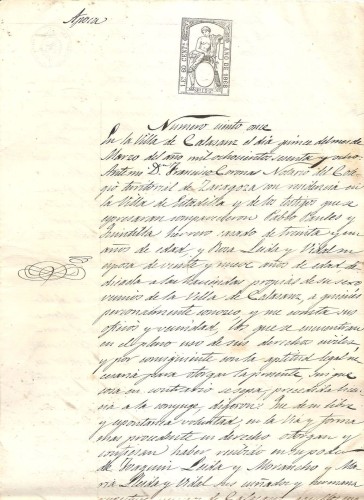 Apoca
AÑO DE 1868
Numero ciento once
En la Villa de Calasanz el dia quince del mes de
Marzo del año mil ochocientos sesenta y ocho
Antemi Dn. Francisco Comas Notario del Cole
gio territorial de Zaragoza con residencia en
la Villa de Estadilla y de los testigos que se
espresaran comparecieron Pablo
herrero casado de treinta y
años de edad, y Rosa Lleida y Vidal su
esposa de veinte y nueve años de edad de
dicada a las haciendas propias de su sexo
vecinos de la Villa de Calasanz, a quienes
personalmente conozco y me consta sus
oficios y vecindad, los que se encuentran
en el pleno uso de sus derechos civiles,
y por consiguiente con la aptitud legal ne
cesaria para otorgar la presente, sin que
cosa en contrario sepa, precedida licen
cia a la conyuge, dijeron: Que de su libre
y espontanea voluntad en la via y forma
que procedente en derecho otorgan y
confiesan haber recibido en su poder
de Joaquin Lleida y Morancho y Ma
ria Lleida y Vidal sus cuñados y hermana